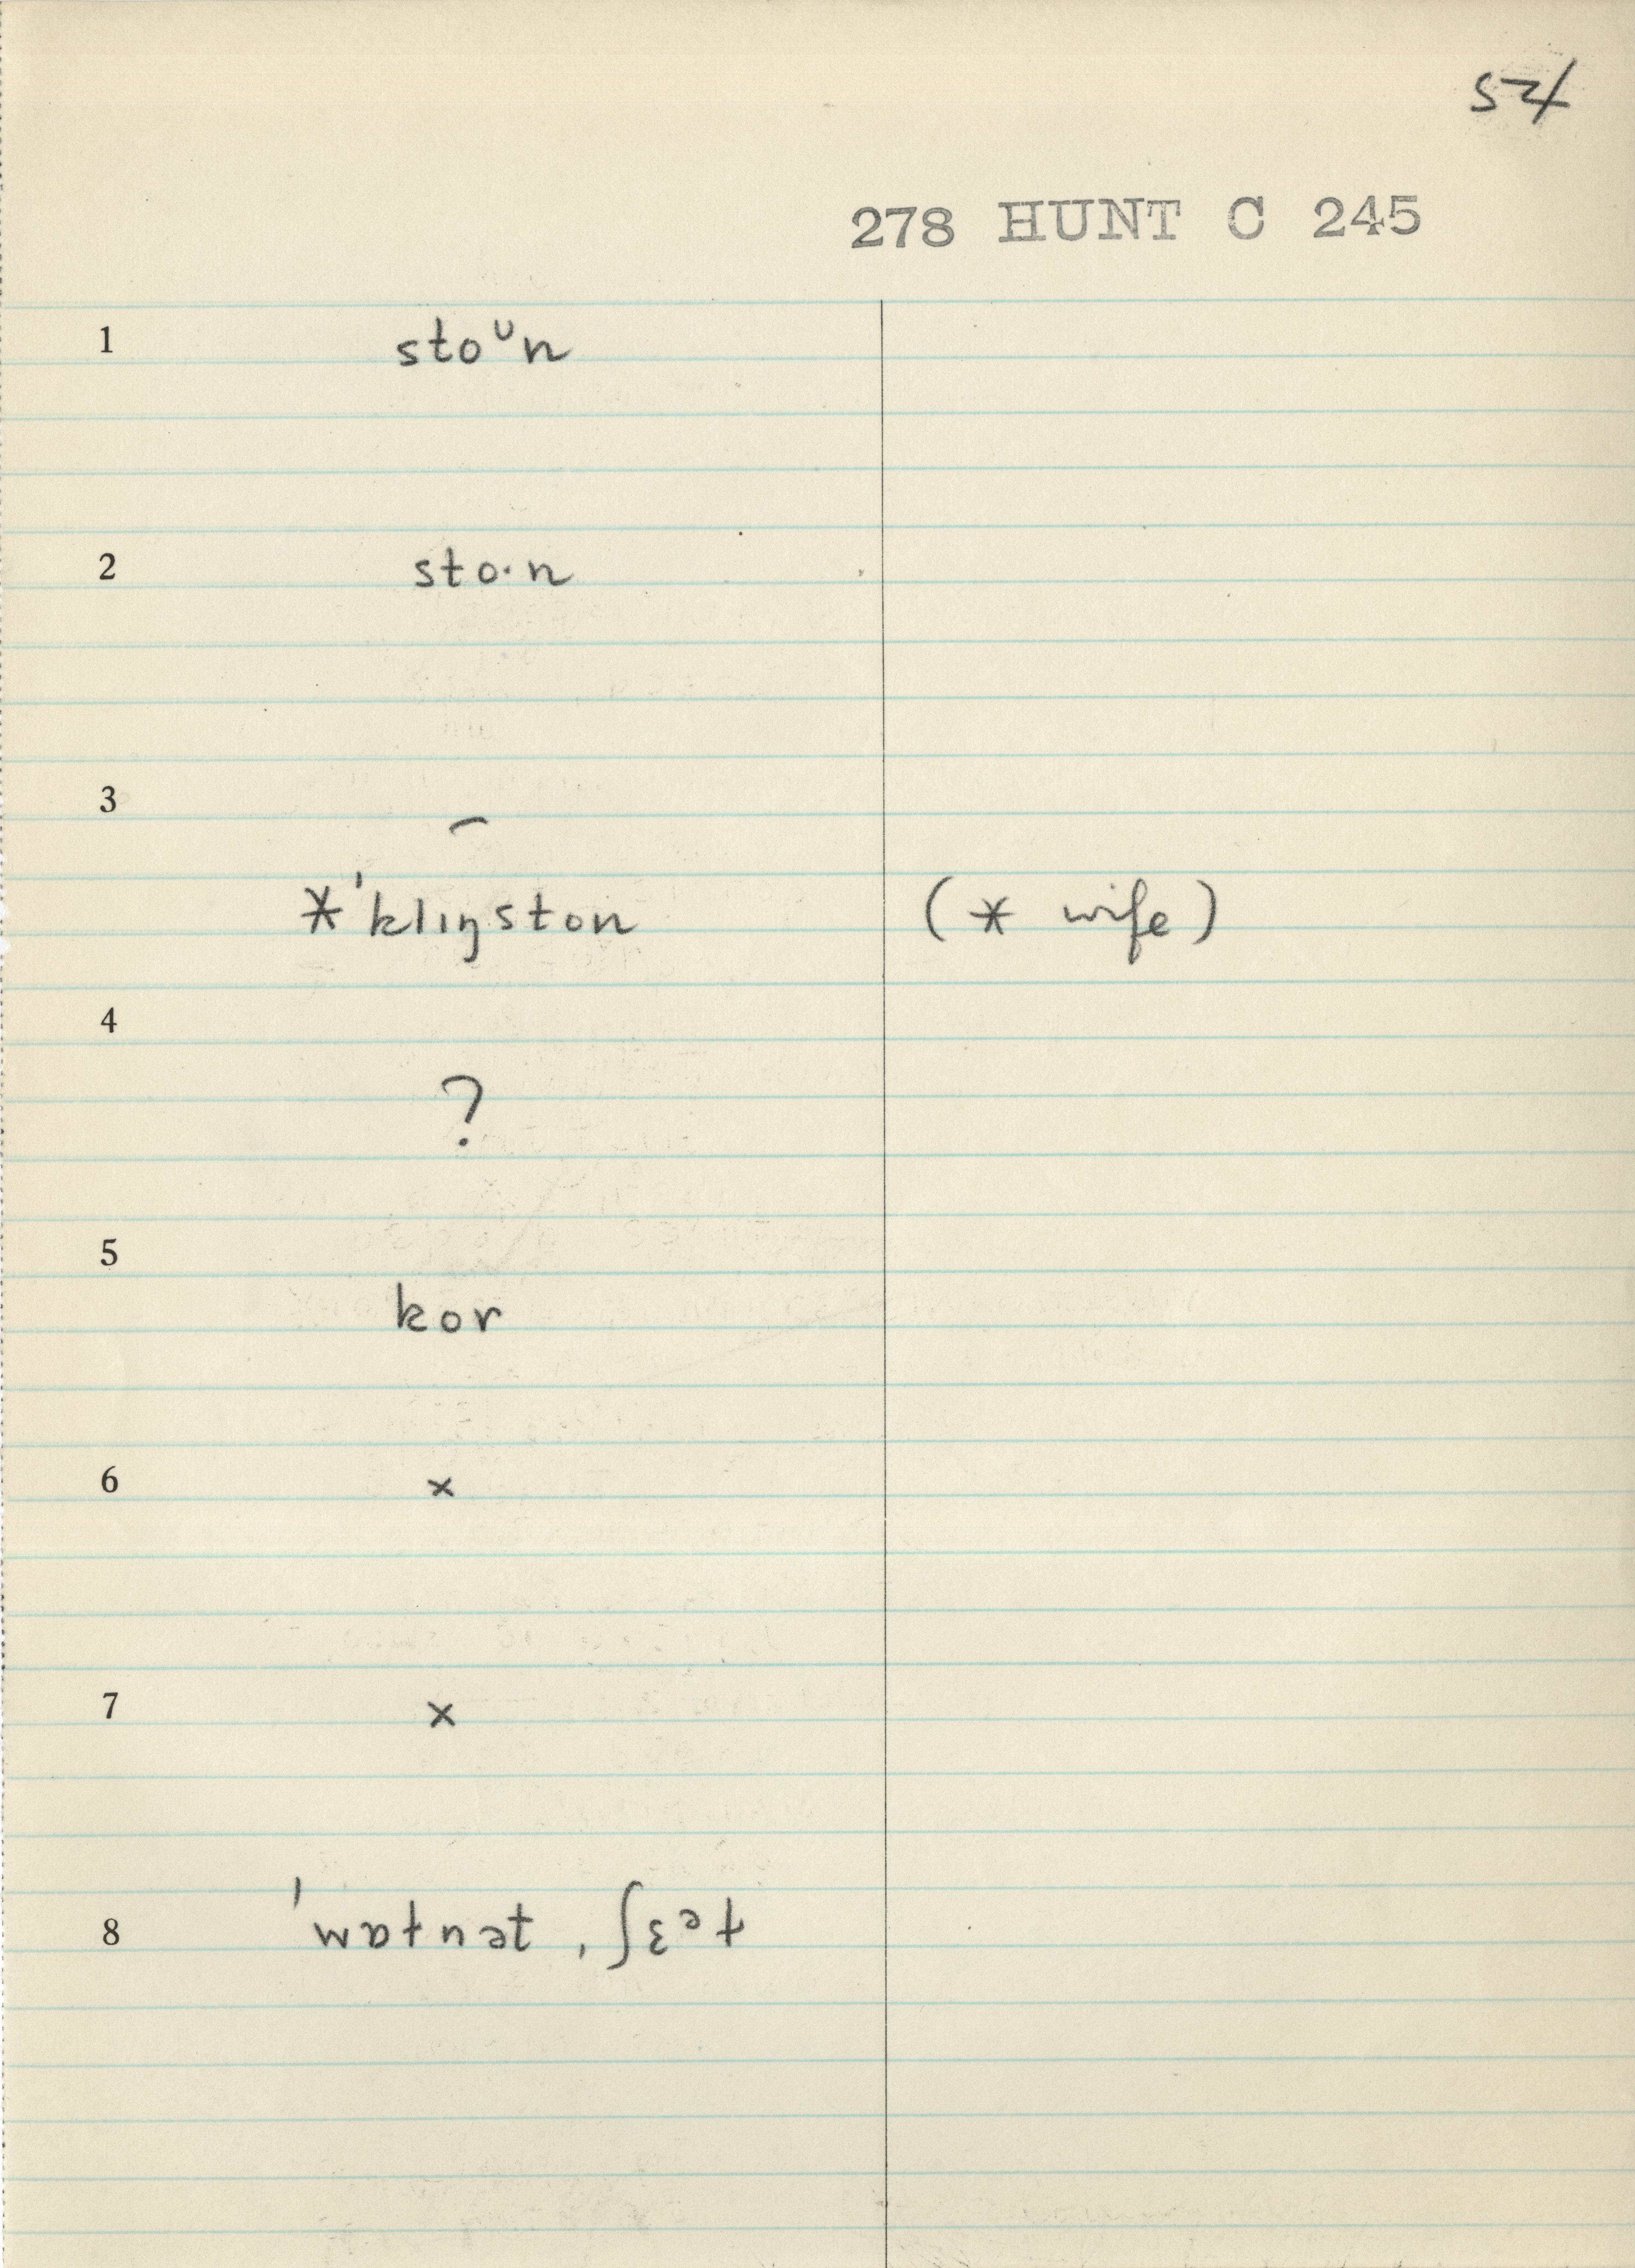 54
278 HUNT C 245
1 stoᶷn
2 sto·n
3 –
*ˈklɪŋston (* wife)
4
?
5
kor
6 ×
7 ×
8 ˈwɒɫnət , ʃɛᵊɫ